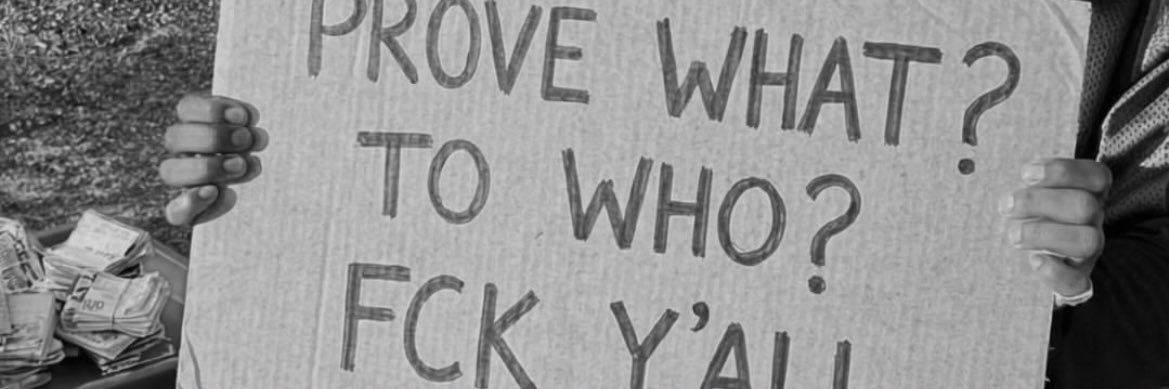 PROVE WHAT?
TO WHO?
FCK Y'ALL